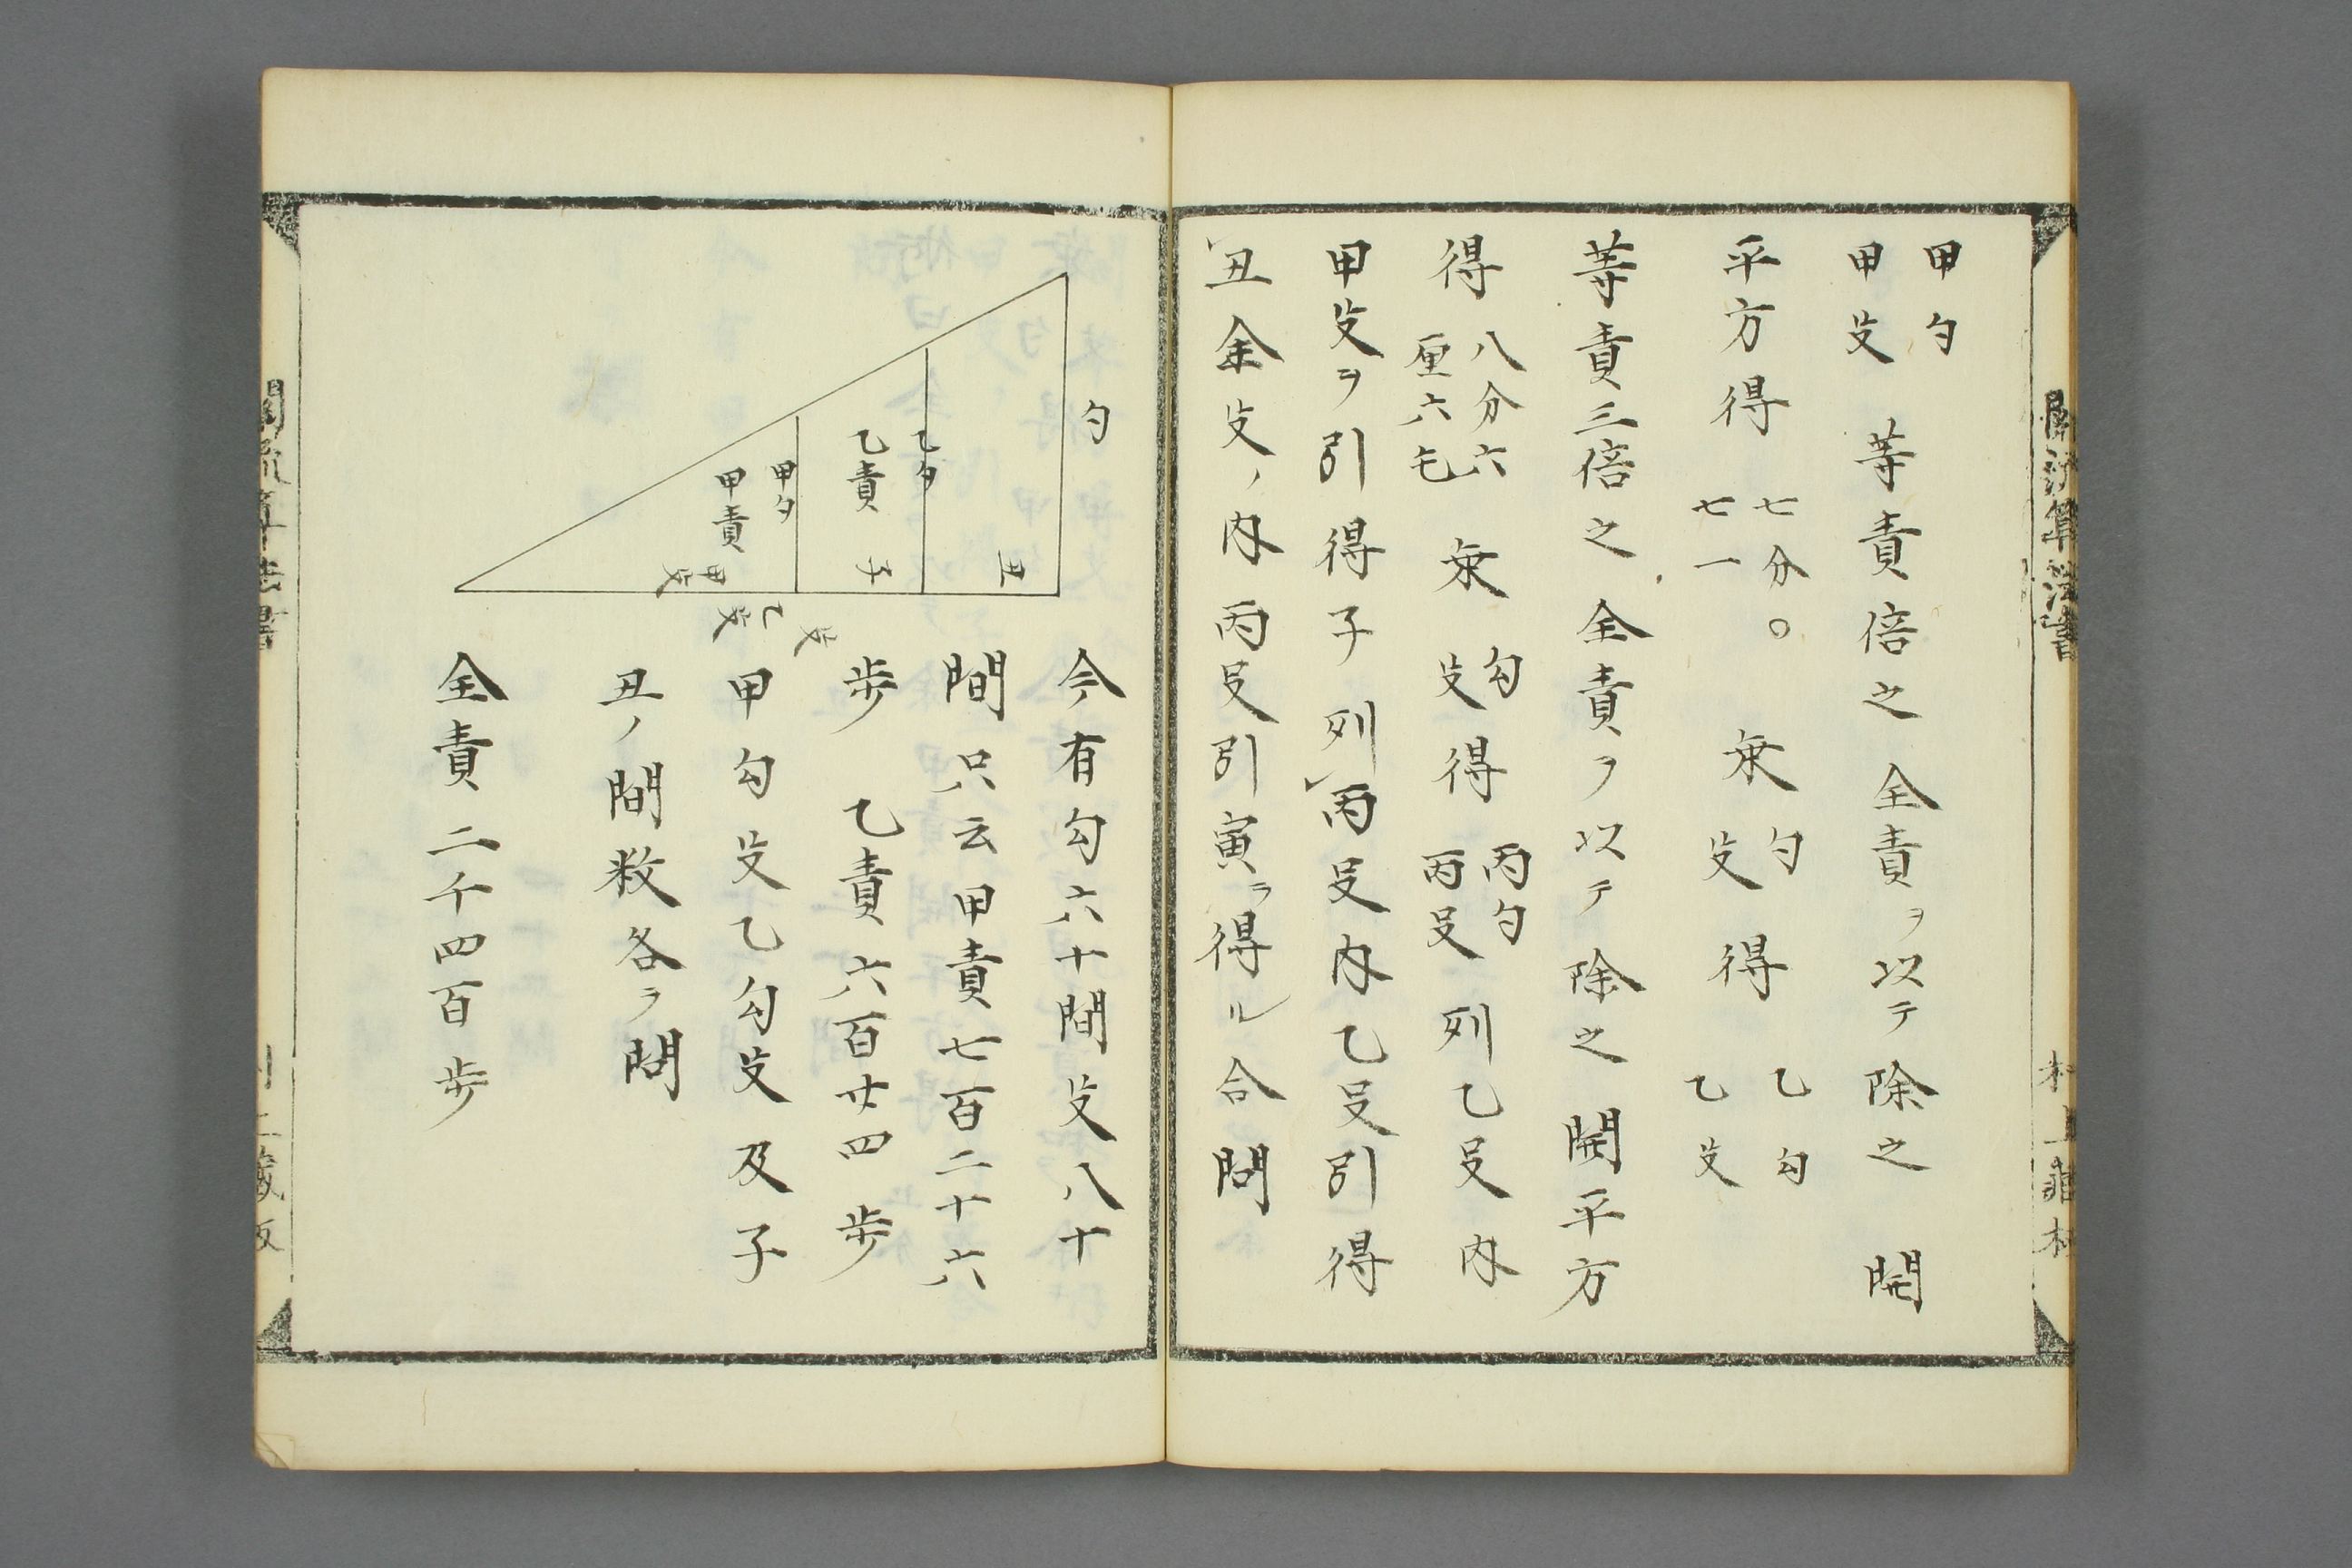 甲勾
甲殳 等責倍之 全責ヲ以テ除之 開
平方得 七分〇七一 乗 勾殳 得 乙勾 乙殳
等責三倍之 全責ヲ以テ除之 開平方
得 八分六厘六毛 乗 勾殳 得 丙勾 丙殳 列乙殳内
甲殳ヲ引得子 列丙殳内乙殳引得
丑 全殳ノ内丙殳引寅ヲ得ル合問
勾
乙勾
乙責
甲勾
甲責
丑
子
甲殳
乙殳
殳
今有勾六十間殳八十
間只云甲責七百二十六
歩 乙責六百廿四歩
甲勾殳乙勾殳及子
丑ノ間数各ヲ問
全責二千四百歩
關流算法書